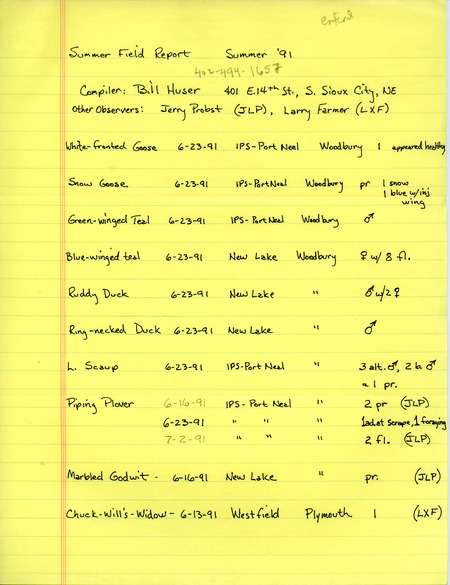 entered
Summer Field Report Summer '91
402-494-1657
Compiler: Bill Huser 401 E.14th St., S. Sioux City, NE
Other Observers: Jerry Probst (JLP), Larry Farmer (LXF)
White-fronted Goose 6-23-91 IPS-Port Neal Woodbury 1 appeared healthy
Snow Goose 6-23-91 IPS-Port Neal Woodbury pr 1 snow
1 blue w/inj
wing
Green-winged Teal 6-23-91 IPS-Port Neal Woodbury ♂
Blue-winged teal 6-23-91 New Lake Woodbury ♀ w/ 8 fl.
Ruddy Duck 6-23-91 New Lake " ♂ w/2 ♀
Ring-necked Duck 6-23-91 New Lake " ♂
L. Scaup 6-23-91 IPS-Port Neal " 3 alt. ♂, 2 b ♂
1 pr.
Piping Plover 6-16-91 IPS-Port Neal " 2 pr (JLP)
6-23-91 " " " 1 ad at scrape, 1 foraging
7-2-91 " " " 2 fl. (JLP)
Marbled Godwit - 6-16-91 New Lake " pr. (JLP)
Chuck-Will's-Widow - 6-13-91 Westfield Plymouth 1 (LXF)